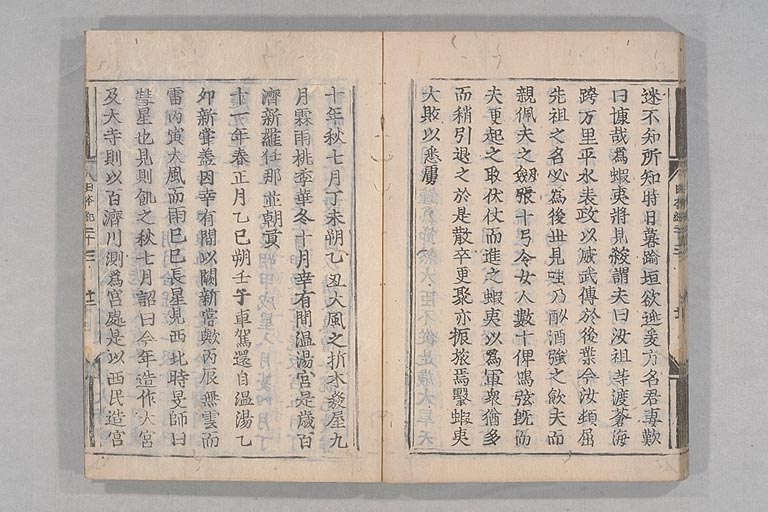 迷不知所知時日暮踰垣欲逃爰方名君妻歎
曰慷哉為蝦夷將見殺謂夫曰汝祖等渡蒼海
跨万里平水表政以威武傳於後葉今汝頻屈
先祖之名必為後世見嗤乃酌酒強之飲夫而
親佩夫之劔張十弓令女人數十俾鳴弦既而
夫更起之取伏仗而進之蝦夷以為軍衆猶多
而稍引退之於是散卒更聚亦振旅焉擊蝦夷
大敗以悉虜
十年秋七月丁未朔乙丑大風之折木發屋九
月霖雨桃李華冬十月幸有間温湯宮是歲百
濟新羅任那並朝貢
十一年春正月乙巳朔壬子車駕還自温湯乙
卯新嘗盖因幸有間以闕新嘗歟丙辰無雲而
雷丙寅大風而雨己巳長星見西北時旻師曰
彗星也見則飢之秋七月詔曰今年造作大宮
及大寺則以百濟川側為宮處是以西民造宮